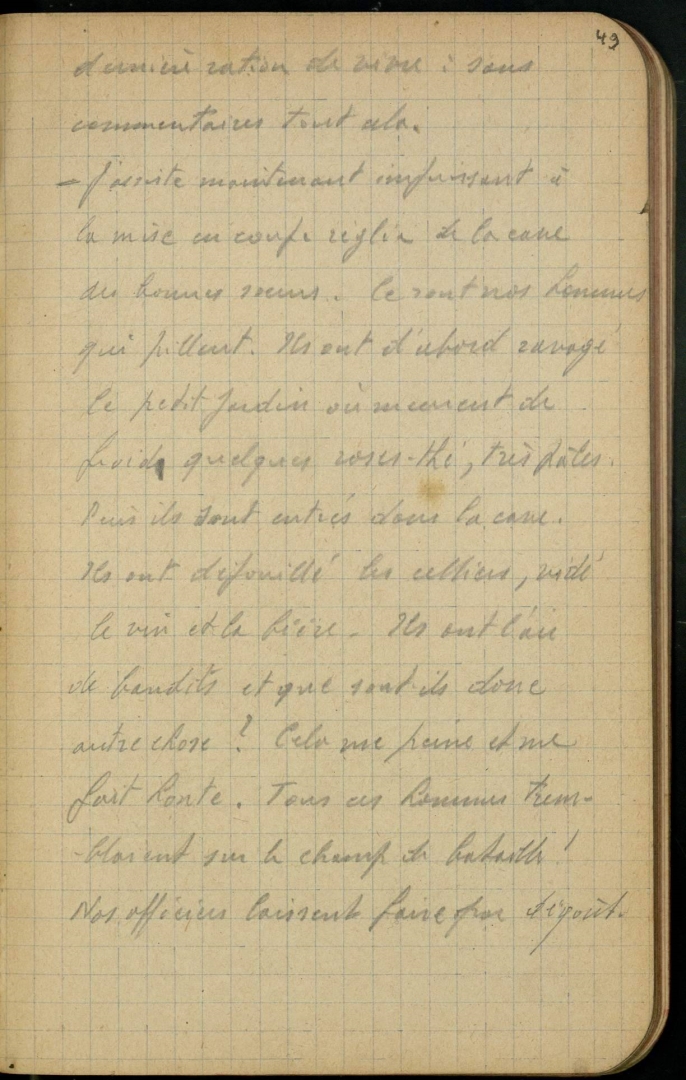 49
dernière ration de vivre : sans
commentaires tout cela.
– J'assiste maintenant impuissant à
la mise en coupe réglée de la cave
des bonnes sœurs. Ce sont nos hommes
qui pillent. Ils ont d'abord ravagé
le petit jardin où meurent de
froid quelques roses-thé, très pâles.
Puis ils sont entrés dans la cave.
Ils ont dépouillé les celliers, vidé
le vin et la bière. Ils ont l'air
de bandits et que sont-ils donc
autre chose ? Cela me peine et me
fait honte. Tous ces hommes trem-
-blaient sur le champ de bataille !
Nos officiers laissent faire par dégoût.